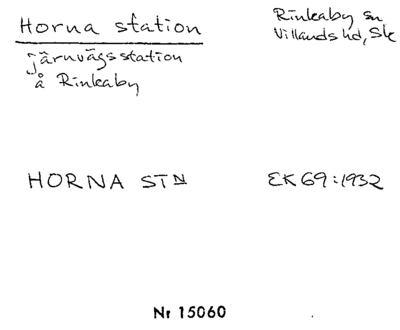 Horna station
järnvägsstation
å Rinkaby
Rinkaby sn
Villands hd, Sk
HORNA STN
EK69:1932
Nr 15060